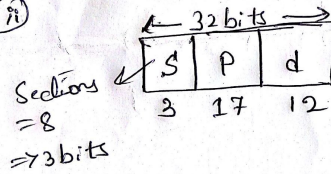 ii)
32 bits
S P d
3 17 12
Sections
=8
=>3 bits